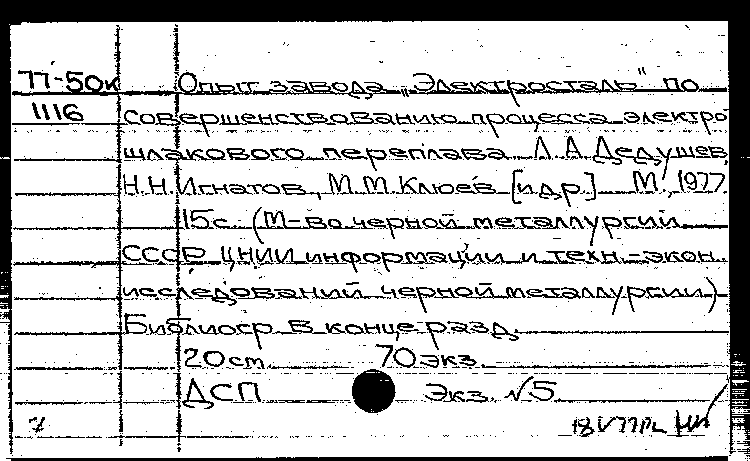 77-50к Опыт завода „Электросталь" по
1116 совершенствованию процесса электро
шлакового переплава Л.А.Дедушев,
Н.Н.Игнатов, М.М.Клюев [и др.] М., 1977.
15с. (М-во черной металлургии
СССР ЦНИИ информации и техн.-экон.
исследований черной металлургии)
Библиогр. в конце разд.
20 ст. 70 экз.
ДСП Экз. №5